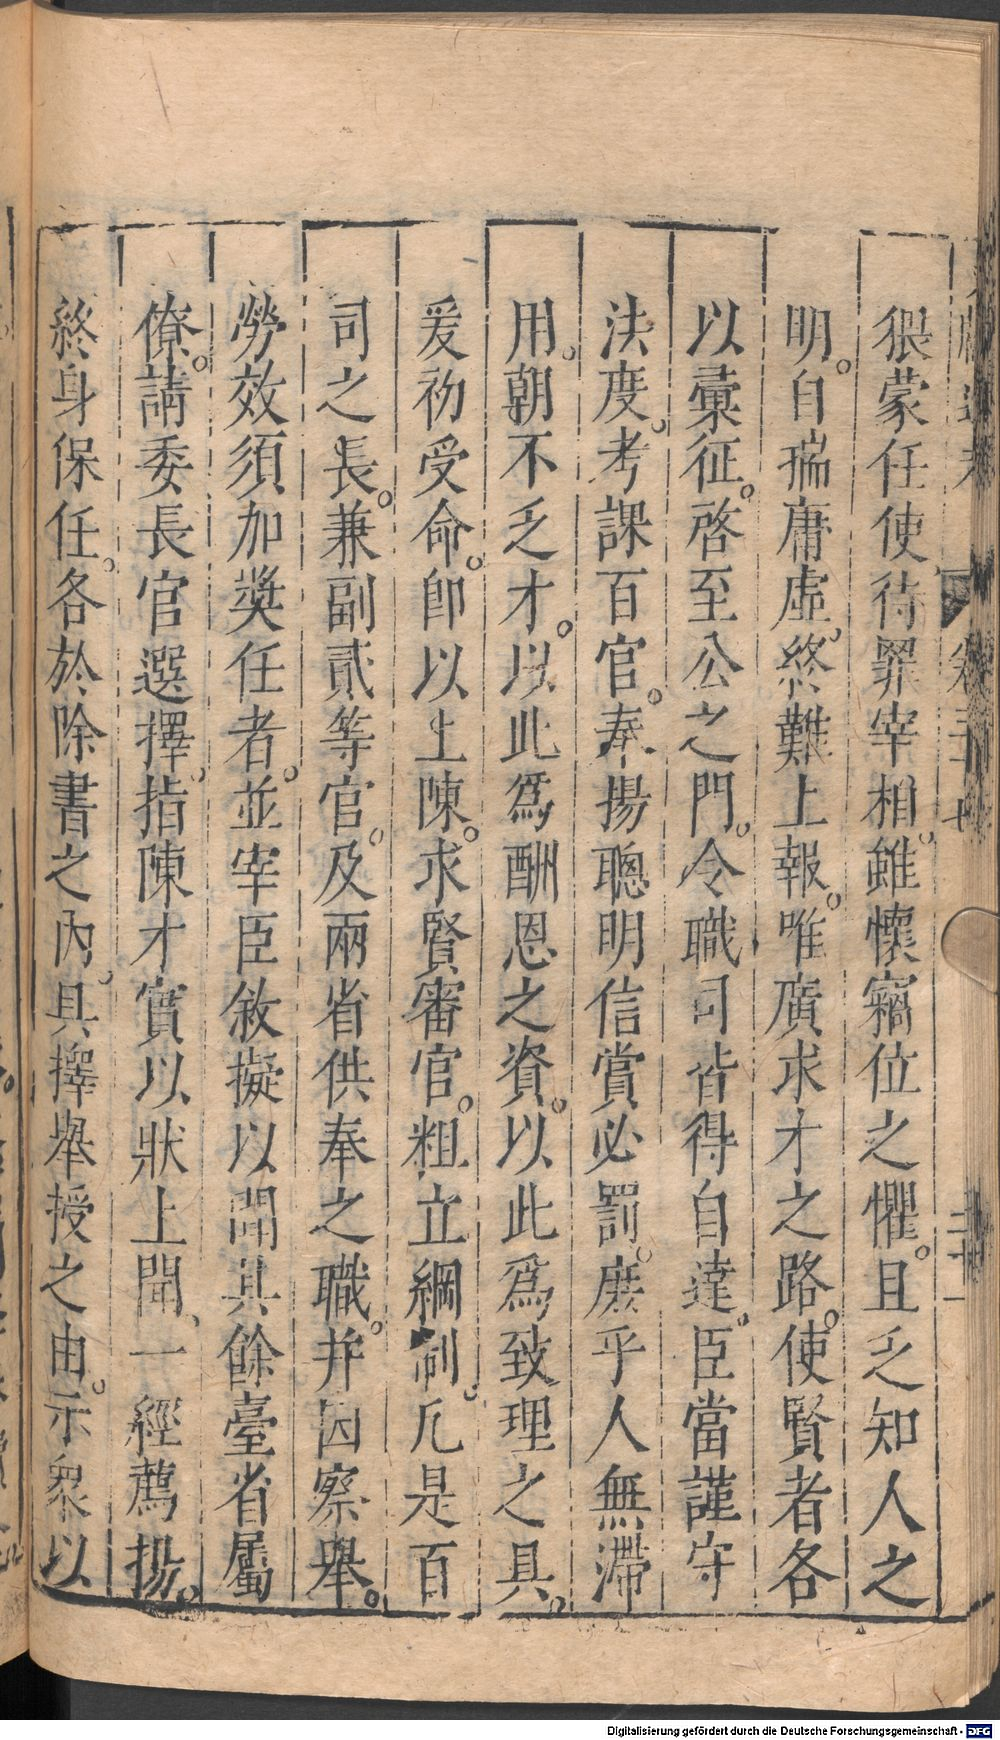 猥蒙任使待罪宰相雖懷竊位之懼。且乏知人之
明。自瑞庸虛。終難上報。唯廣求才之路。使賢者各
以彙征。啓至公之門。令職司皆得自達。臣當謹守
法度。考課百官。奉揚聰明信賞必罰。庶乎人無滯
用。朝不乏才。以此爲酬恩之資。以此爲致理之具。
爰初受命。卽以上陳。求賢審官。粗立綱制。凢是百
司之長。兼副貳等官。及兩省供奉之職。幷因察舉。
勞效須加奬任者。並宰臣敘擬以聞其餘臺省屬
僚。請委長官選擇。指陳才實以狀上聞、一經薦揚。
終身保任。各於除書之內、具擇舉授之由。示衆以
卷三十七
二十一
Digitalisierung gefördert durch die Deutsche Forschungsgemeinschaft - DFG